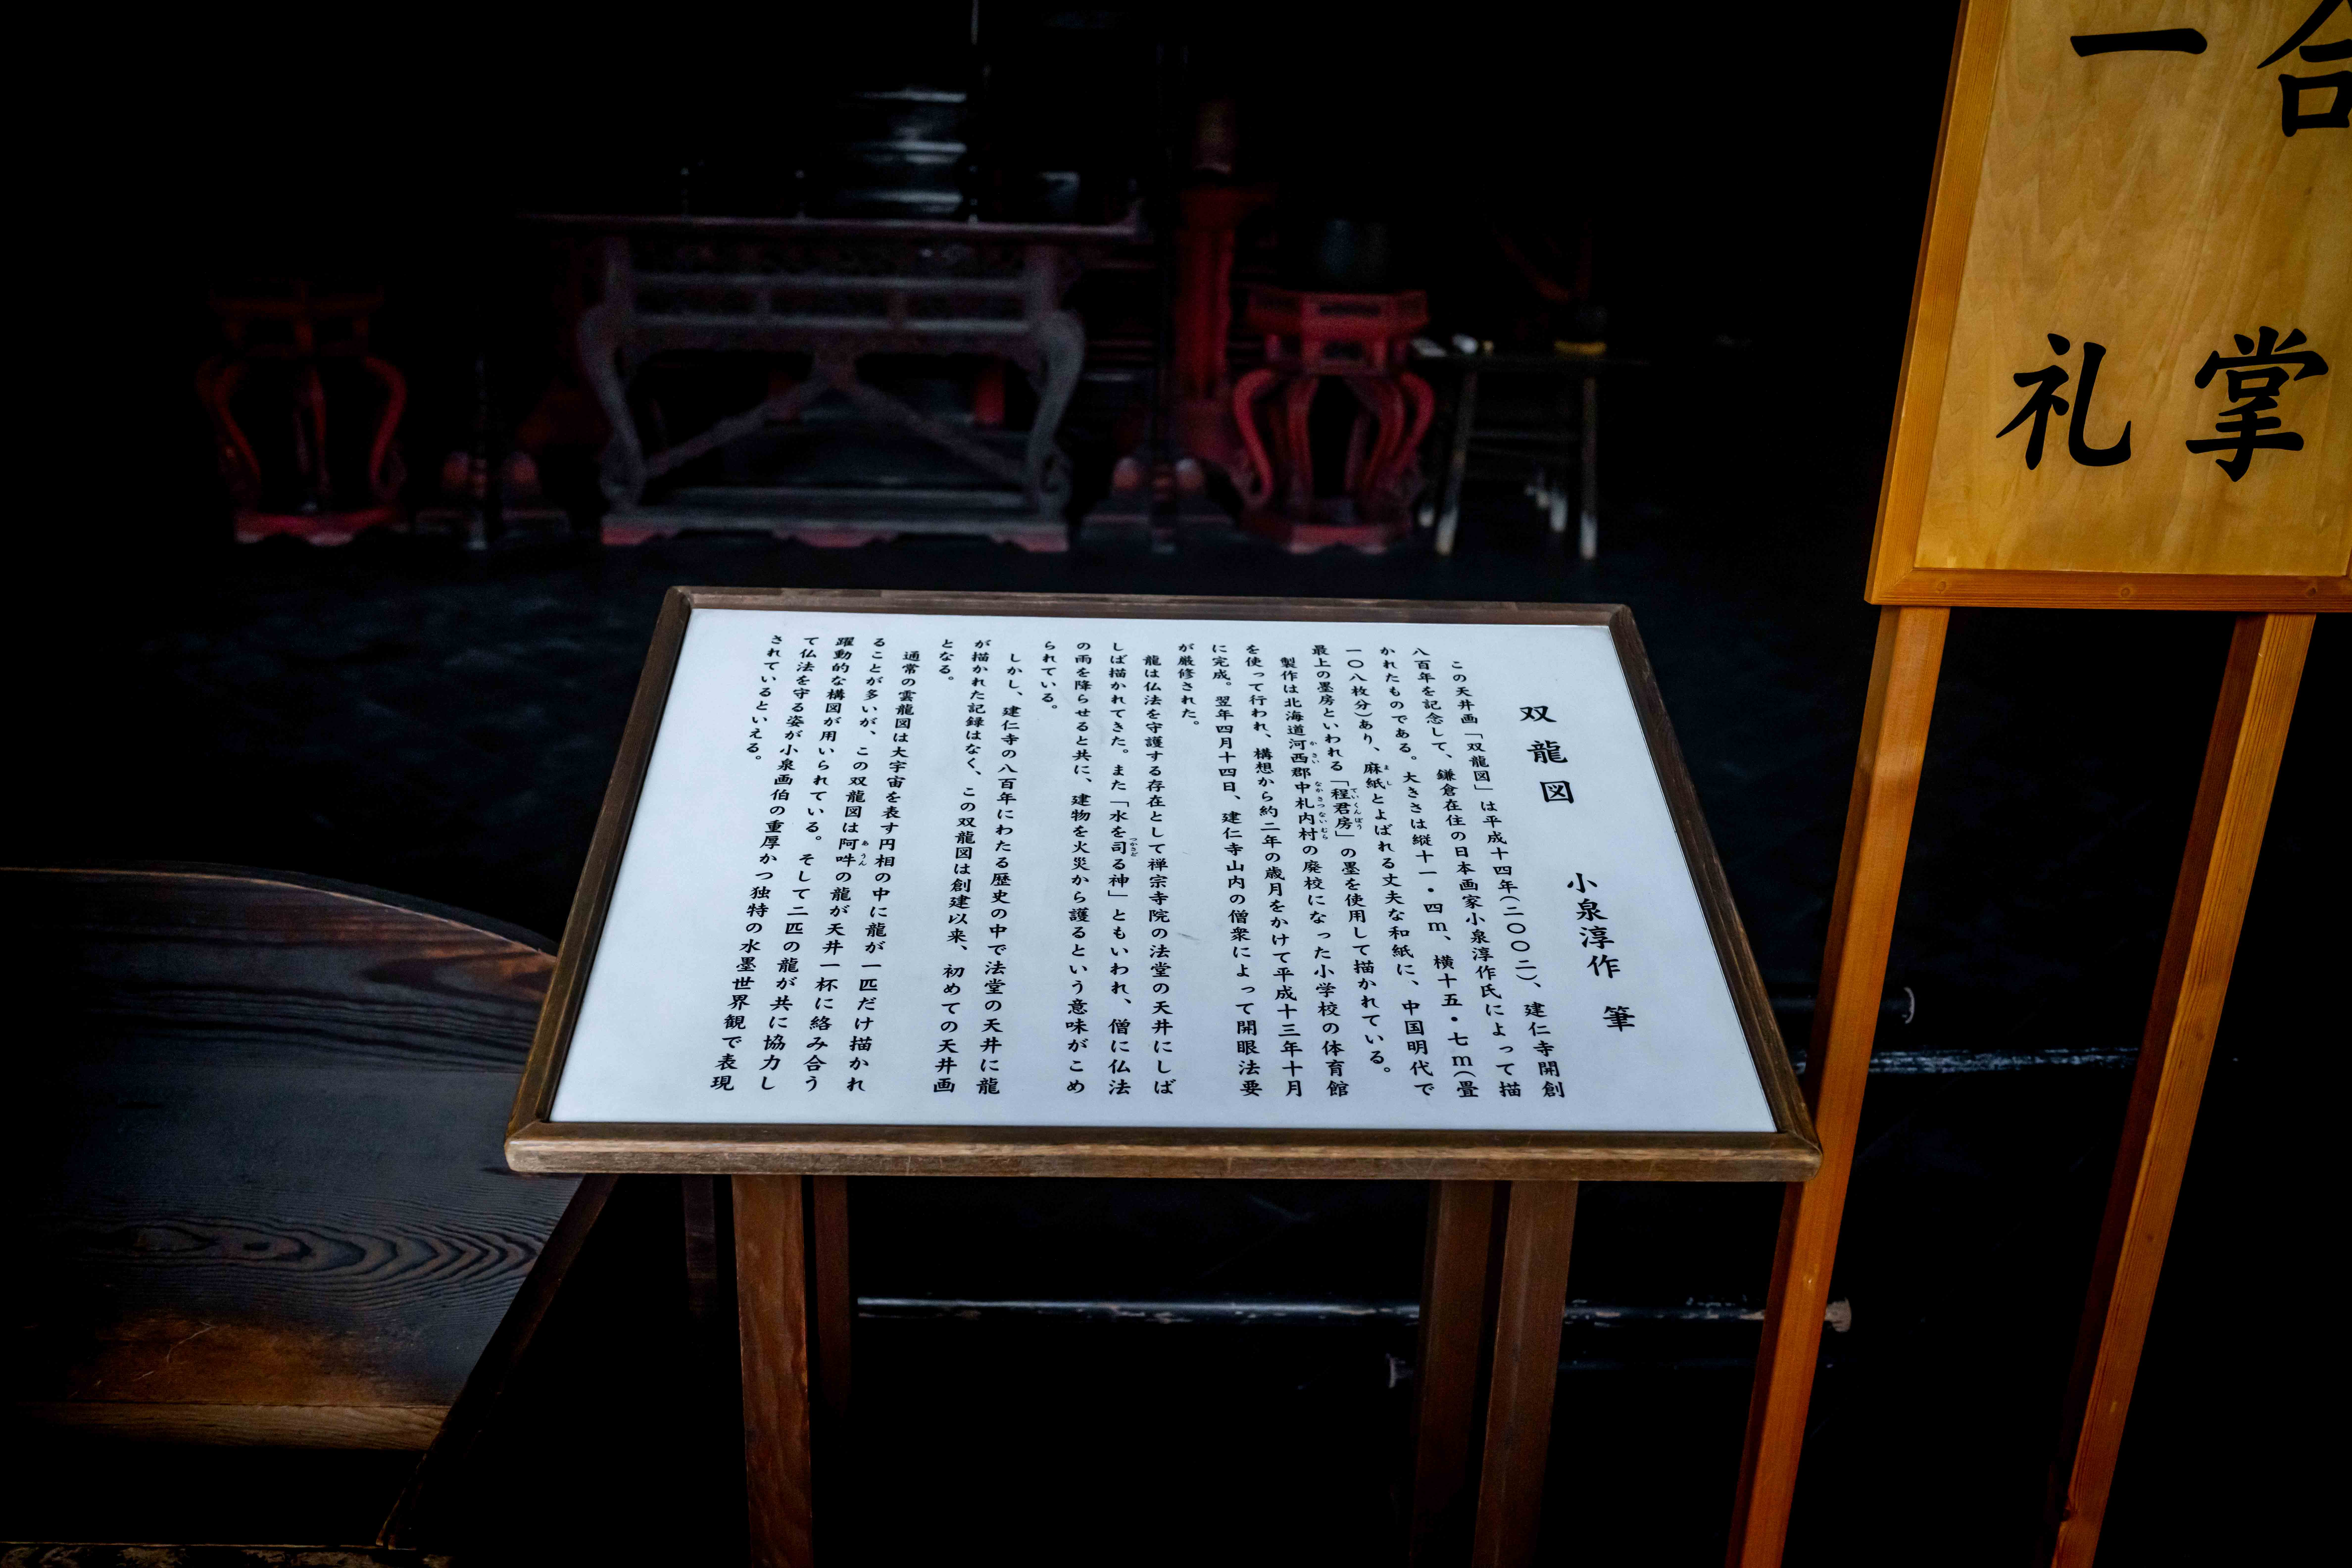 合掌
一礼
双龍図　小泉淳作　筆
この天井画「双龍図」は平成十四年(二〇〇二)、建仁寺開創
八百年を記念して、鎌倉在住の日本画家小泉淳作氏によって描
かれたものである。大きさは縦十一・四ｍ、横十五・七ｍ(畳
一〇八枚分)あり、麻紙とよばれる丈夫な和紙に、中国明代で
最上の墨房といわれる「程君房」の墨を使用して描かれている。
製作は北海道河西郡中札内村の廃校になった小学校の体育館
を使って行われ、構想から約二年の歳月をかけて平成十三年十月
に完成。翌年四月十四日、建仁寺山内の僧衆によって開眼法要
が厳修された。
龍は仏法を守護する存在として禅宗寺院の法堂の天井にしば
しば描かれてきた。また「水を司る神」ともいわれ、僧に仏法
の雨を降らせると共に、建物を火災から護るという意味がこめ
られている。
しかし、建仁寺の八百年にわたる歴史の中で法堂の天井に龍
が描かれた記録はなく、この双龍図は創建以来、初めての天井画
となる。
通常の雲龍図は大宇宙を表す円相の中に龍が一匹だけ描かれ
ることが多いが、この双龍図は阿吽の龍が天井一杯に絡み合う
躍動的な構図が用いられている。そして二匹の龍が共に協力し
て仏法を守る姿が小泉画伯の重厚かつ独特の水墨世界観で表現
されているといえる。